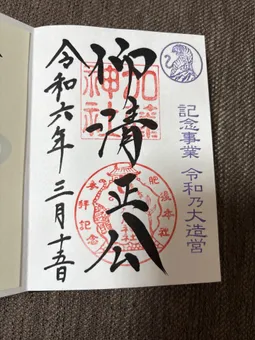 記念事業 令和乃大造営
仰清正公
加藤神社
令和六年三月十五日
参拝記念